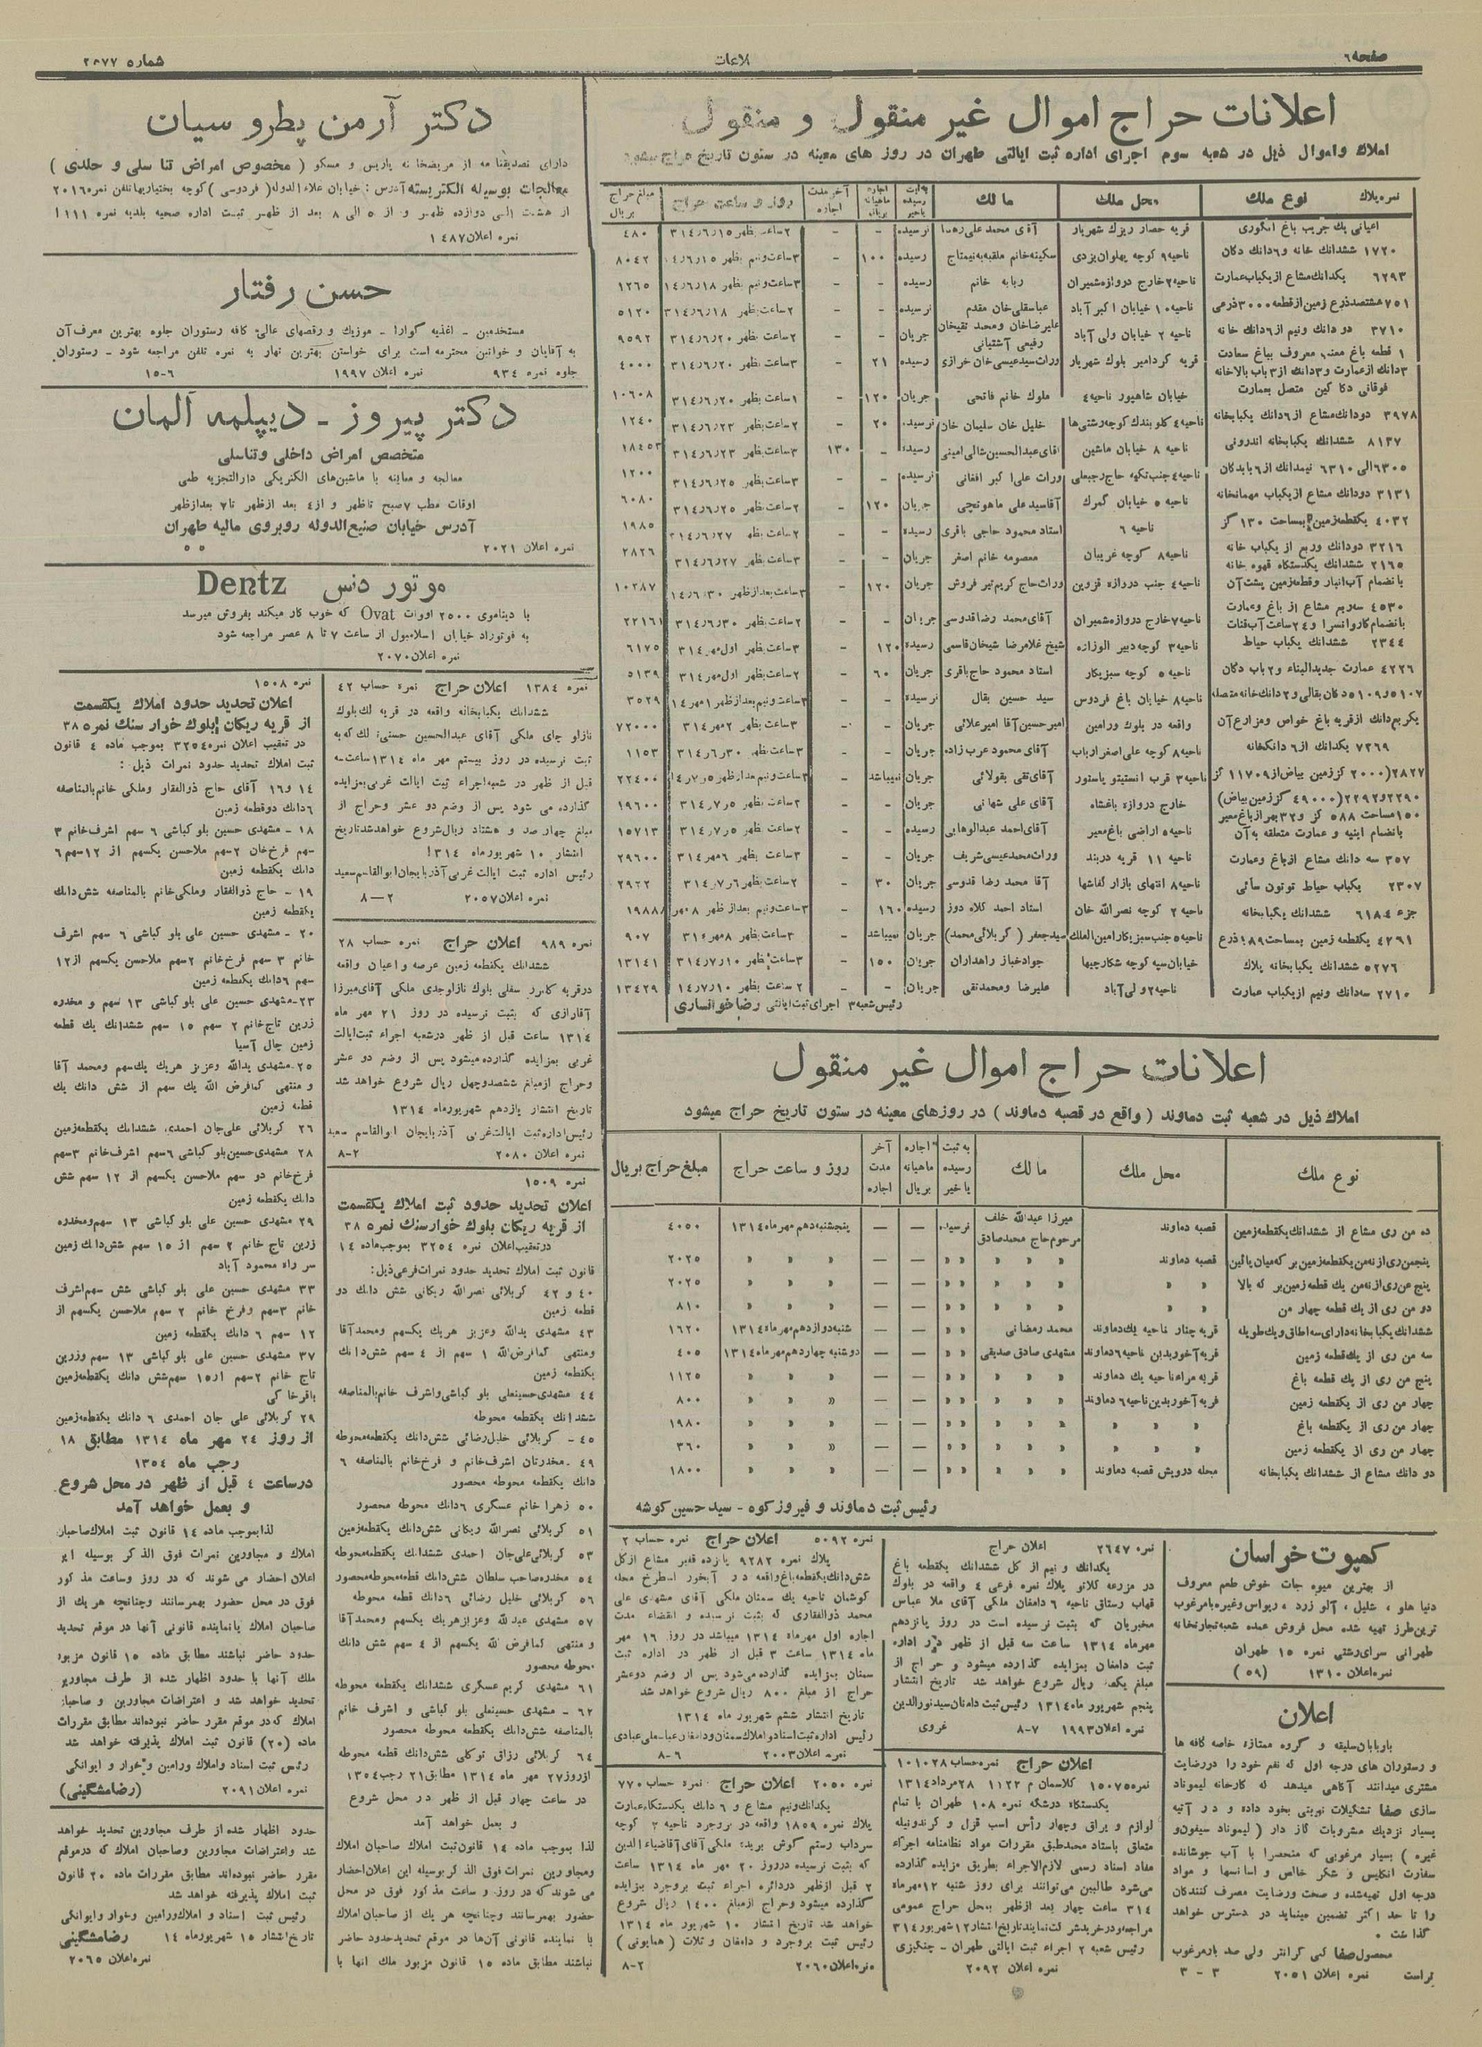 صفحه ٦
لاعات
شماره ۲۵۷۷
اعلانات حراج اموال غیر منقول و منقول
املاک و اموال ذیل در شعبه سوم اجرای اداره ثبت ایالتی طهران در روز های معینه در ستون تاریخ حراج میشود
نمره پلاک نوع ملک محل ملک مالک به ثبت رسیده یا خیر اجاره ماهیانه بریال آخر مدت اجاره روز و ساعت حراج مبلغ حراج بریال
اعیانی یک جریب باغ انگوری قریه حصار زیرک شهریار آقای محمد علی رهنما نرسیده - - ۲ساعت بظهر ۳۱۴٫٦٫۱۵ ۴۸۰
۱۷۲۰ ششدانک خانه و ٦دانک دکان ناحیه ۹ کوچه پهلوان یزدی سکینه خانم ملقبه به نیمتاج رسیده ۱۰۰ - ۳ساعت ونیم بظهر ۱۴٫٦٫۱۵ ۸۰۴۲
٦۲۹۳ یکدانک مشاع از یکباب عمارت ناحیه ۲ خارج دروازه شمیران ربابه خانم رسیده - - ۳ساعت ونیم بظهر ۱۴٫٦٫۱۸ ۱۲٦۵
۷۵۱ هشتصد ذرع زمین از قطعه ۳۰۰۰ ذرعی ناحیه ۱۰ خیابان اکبر آباد عباسقلی خان مقدم نرسیده - - ۲ساعت بظهر ۳۱۴٫٦٫۱۸ ۵۱۲۰
۳۷۱۰ دو دانک ونیم از ٦دانک خانه ناحیه ۲ خیابان ولی آباد علیرضاخان ومحمد تقیخان رفیعی آشتیانی جریان - - ۲ساعت بظهر ۳۱۴٫٦٫۲۰ ۹۵۹۲
۱ قطعه باغ معنب معروف بباغ سعادت قریه کردامیر بلوک شهریار وراث سید عیسی خان خرازی رسیده ۲۱ - ۳ساعت بظهر ۳۱۴٫٦٫۲۰ ۴۰۰۰
۳دانک از عمارت و۳دانک از ۳ باب بالاخانه
فوقانی دکاکین متصل بعمارت خیابان شاهپور ناحیه ۴ ملوک خانم فاتحی جریان ۱۲۰ - ۱ساعت بظهر ۳۱۴٫٦٫۲۰ ۱۰٦۰۸
۳۹۷۸ دودانک مشاع از ٦دانک یکبابخانه ناحیه ۴ کلوبندک کوچه رشتی‌ها خلیل خان سلیمان خان نرسیده ۲۰ - ۲ساعت بظهر ۳۱۴٫٦٫۲۳ ۱۲۴۰
۸۱۳۷ ششدانک یکبابخانه اندرونی ناحیه ۸ خیابان ماشین آقای عبدالحسین شالی امینی رسیده - ۱۳۰ ۳ساعت بظهر ۳۱۴٫٦٫۲۳ ۱۸۴۵۳
٦۳۰۵ الی ٦۳۱۰ نیمدانک از ٦بابدکان ناحیه ۴ جنب تکیه حاج رجبعلی وراث علی اکبر افغانی نرسیده - - ۳ساعت بظهر ۳۱۴٫٦٫۲۵ ۱۲۰۰
۳۱۳۱ دودانک مشاع از یکباب مهمانخانه ناحیه ۵ خیابان گمرک آقا سید علی ماهوتچی جریان ۱۲۰ - ۲ساعت بظهر ۳۱۴٫٦٫۲۵ ٦۰۸۰
۴۰۳۲ یکقطعه زمین بمساحت ۱۳۰ گز ناحیه ٦ استاد محمود حاجی باقری رسیده - - ۲ساعت بظهر ۳۱۴٫٦٫۲۷ ۱۹۸۵
۳۲۱٦ دودانک وربع از یکباب خانه ناحیه ۸ کوچه غریبان معصومه خانم اصغر جریان - - ۳ساعت بظهر ۳۱۴٫٦٫۲۷ ۲۸۲٦
۲۱٦۵ ششدانک یکدستگاه قهوه خانه
بانضمام آب انبار وقطعه زمین پشت آن ناحیه ۴ جنب دروازه قزوین وراث حاج کریم تیر فروش جریان ۱۲۰ - ۳ساعت بعد از ظهر ۱۴٫٦٫۳۰ ۱۰۲۸۷
۴۵۳۰ سه ربع مشاع از باغ وعمارت
بانضمام کاروانسرا و ۲۴ ساعت آب قنات ناحیه ۷ خارج دروازه شمیران آقای محمد رضا قدوسی جریان - - ۲ساعت بظهر ۳۱۴٫٦٫۳۰ ۲۲۱٦۱
۲۳۴۴ ششدانک یکباب حیاط ناحیه ۳ کوچه دبیر الوزاره شیخ غلامرضا شیخان قاسمی رسیده ۱۲۰ - ۳ساعت بظهر اول مهر ۳۱۴ ٦۱۷۵
۴۲۲٦ عمارت جدید البناء و ۲ باب دکان ناحیه ۵ کوچه سبزیکار استاد محمود حاج باقری جریان ٦۰ - ۲ساعت بظهر اول مهر ۳۱۴ ۵۱۳۹
۵۱۰۷ و ۵۱۰۹ دکان بقالی و ۲دانک خانه متصله ناحیه ۸ خیابان باغ فردوس سید حسین بقال نرسیده - - ۳ساعت ونیم بعد از ظهر ۱مهر ۱۴ ۳۵۲۹
یکربع دانک از قریه باغ خواص ومزارع آن واقعه در بلوک ورامین امیرحسین آقا امیر علائی جریان - - ۳ساعت بظهر ۲مهر ۳۱۴ ۷۲۰۰۰
۷۲٦۹ یکدانک از ٦ دانک خانه ناحیه ۸ کوچه علی اصغر ارباب آقای محمود عرب زاده جریان - - ۲ساعت بظهر ۳۱۴٫٦٫۳۰ ۱۱۵۳
۲۸۲۷ (۲۰۰۰ گز زمین بیاض از ۱۱۷۰۹ گز ناحیه ۳ قرب انستیتو پاستور آقای تقی بقولائی جریان نمیباشد - ۳ساعت ونیم بعد از ظهر ۱۴٫۷٫۵ ۲۲۴۰۰
۲۲۹۰ و ۲۲۹۲ (۴۹۰۰۰ گز زمین بیاض) خارج دروازه باغشاه آقای علی شهانی جریان - - ۳ساعت بظهر ۳۱۴٫۷٫۵ ۱۹٦۰۰
۱۵۰ مساحت ۵۸۸ گز و ۳۲ بهر از باغ معیر
بانضمام ابنیه و عمارت متعلقه به آن ناحیه ۵ اراضی باغ معیر آقای احمد عبدالوهابی رسیده - - ۲ساعت بظهر ۳۱۴٫۷٫۵ ۱۵۷۱۳
۳۵۷ سه دانک مشاع از باغ وعمارت ناحیه ۱۱ قریه دربند وراث محمد عیسی شریف جریان - - ۳ساعت بظهر ٦مهر ۳۱۴ ۲۹٦۰۰
۲۳۰۷ یکباب حیاط توتون سائی ناحیه ۸ انتهای بازار کفاشها آقا محمد رضا قدوسی جریان ۳۰ - ۲ساعت بظهر ۳۱۴٫۷٫٦ ۲۹۲۲
جزء ٦۱۸۴ ششدانک یکبابخانه ناحیه ۲ کوچه نصرالله خان استاد احمد کلاه دوز رسیده ۱٦۰ - ۳ساعت ونیم بعد از ظهر ۸مهر ۱۹۸۸۸
۴۲٦۱ یکقطعه زمین بمساحت ۱۸۹ ذرع ناحیه ۵ جنب سبزیکار امین الملک سید جعفر (کربلائی محمد) جریان نمیباشد - ۳ساعت بظهر ۸مهر ۳۱۴ ۹۰۷
۵۲۷٦ ششدانک یکبابخانه پلاک خیابان سیه کوچه شکارچیها جواد خباز راهداران جریان ۱۵۰ - ۳ساعت بظهر ۳۱۴٫۷٫۱۰ ۱۳۱۴۱
۲۷۱۰ سه دانک ونیم از یکباب عمارت ناحیه ۲ ولی آباد علیرضا ومحمد تقی جریان - - ۲ساعت بظهر ۱۴٫۷٫۱۰ ۱۳۴۲۹
رئیس شعبه ۳ اجرای ثبت ایالتی رضا خوانساری
اعلانات حراج اموال غیر منقول
املاک ذیل در شعبه ثبت دماوند (واقع در قصبه دماوند) در روزهای معینه در ستون تاریخ حراج میشود
نوع ملک محل ملک مالک به ثبت رسیده یا خیر اجاره ماهیانه بریال آخر مدت اجاره روز و ساعت حراج مبلغ حراج بریال
ده من ری مشاع از ششدانک یکقطعه زمین قصبه دماوند میرزا عبدالله خلف مرحوم حاج محمد صادق نرسیده — — پنجشنبه دهم مهر ماه ۱۳۱۴ ۴۰۵۰
پنجمن ری از نه من یکقطعه زمین بر که میان پائین قصبه دماوند » » » » » — — » » » ۲۰۲۵
پنج من ری از نه من یک قطعه زمین بر که بالا » » » » » » » — — » » » ۲۰۲۵
دو من ری از یک قطعه چهار من » » » » » » » — — » » » ۸۱۰
ششدانک یکبابخانه دارای سه اطاق ویک طویله قریه چنار ناحیه یک دماوند محمد رمضانی » » — — شنبه دوازدهم مهر ماه ۱۳۱۴ ۱٦۲۰
سه من ری از یک قطعه زمین قریه آخور بدین ناحیه ٦ دماوند مشهدی صادق صدیقی » » — — دوشنبه چهاردهم مهر ماه ۱۳۱۴ ۴۰۵
پنج من ری از یک قطعه باغ قریه مراء ناحیه یک دماوند » » » » » — — » » » ۱۱۲۵
چهار من ری از یکقطعه زمین قریه آخور بدین ناحیه ٦ دماوند » » » » » — — » » » ۸۰۰
چهار من ری از یکقطعه باغ » » » » » » » » — — » » » ۱۹۸۰
چهار من ری از یکقطعه زمین » » » » » » » » — — » » » ۳٦۰
دو دانک مشاع از ششدانک یکبابخانه محله درویش قصبه دماوند » » » » » — — » » » ۱۸۰۰
رئیس ثبت دماوند و فیروزکوه - سید حسین کوشه
کمپوت خراسان
از بهترین میوه جات خوش طعم معروف
دنیا هلو ، شلیل ، آلو زرد ، ریواس وغیره بامرغوب
ترین طرز تهیه شده محل فروش عمده شعبه تجارتخانه
طهرانی سرای رشتی نمره ۱۵ طهران
نمره اعلان ۱۳۱۰ (۵۹)
اعلان
باربابان سلیقه و گروه ممتازه خاصه کافه ها
و رستوران های درجه اول که نفع خود را در رضایت
مشتری میدانند آگاهی میدهد که کارخانه لیموناد
سازی صفا تشکیلات نوینی بخود داده و در آتیه
بسیار نزدیک مشروبات گاز دار (لیموناد سیفون و
غیره) بسیار مرغوبی که منحصرا با آب جوشانده
سفارت انگلیس و شکر خالص و اسانسها و مواد
درجه اول تهیه شده و صحت و رضایت مصرف کنندگان
را تا حد اکثر تضمین مینماید در دسترس خواهد
گذاشت .
محصول صفا کمی گرانتر ولی صد بار مرغوب
تر است نمره اعلان ۲۰۵۱ ۳ - ۳
نمره ۲٦۴۷ اعلان حراج
یکدانک و نیم از کل ششدانک یکقطعه باغ
در مزرعه کلاتو پلاک نمره فرعی ۴ واقعه در بلوک
قهاب رستاق ناحیه ٦ دامغان ملکی آقای ملا عباس
مخبریان که بثبت نرسیده است در روز پانزدهم
مهرماه ۱۳۱۴ ساعت سه قبل از ظهر در اداره
ثبت دامغان بمزایده گذارده میشود و حراج از
مبلغ یکصد ریال شروع خواهد شد تاریخ انتشار
پنجم شهریور ماه ۱۳۱۴ رئیس ثبت دامغان سید نورالدین
نمره اعلان ۱۹۹۳ ۷-۸ غروی
اعلان حراج نمره حساب ۱۰۱۰۲۸
نمره ۱۵۰۷۵ کلاسمان م ۱۱۲۲ ۲۸مرداد ۱۳۱۴
یکدستگاه درشکه نمره ۱۰۸ طهران با تمام
لوازم و یراق وچهار رأس اسب قزل و کرند ونیله
متعلق باستاد محمد طبق مقررات مواد نظامنامه اجراء
مفاد اسناد رسمی لازم الاجراء بطریق مزایده گذارده
می‌شود طالبین می‌توانند برای روز شنبه ۱۲مهرماه
۳۱۴ ساعت چهار بعد از ظهر بمحل حراج عمومی
مراجعه و در خرید شرکت نمایند تاریخ انتشار ۱۲ شهریور ۳۱۴
رئیس شعبه ۲ اجراء ثبت ایالتی طهران - چنگیزی
نمره اعلان ۲۰۹۲
نمره ۵۰۹۲ اعلان حراج نمره حساب ۲
پلاک نمره ۹۲۸۲ یازده قفیز مشاع از کل
شش دانک یکقطعه باغ واقعه در آبخور اسطرخ محله
کوشمان ناحیه یک سمنان ملکی آقای مشهدی علی
محمد ذوالفقاری که بثبت نرسیده و انقضاء مدت
اجاره اول مهرماه ۱۳۱۴ میباشد در روز ۱٦ مهر
ماه ۱۳۱۴ ساعت ۳ قبل از ظهر در اداره ثبت
سمنان بمزایده گذارده می‌شود پس از وضع دو عشر
حراج از مبلغ ۸۰۰ ریال شروع خواهد شد
تاریخ انتشار ششم شهریور ماه ۱۳۱۴
رئیس اداره ثبت اسناد و املاک سمنان ودامغان عباسعلی عبادی
نمره اعلان ۲۰۰۳ ٦-۸
نمره ۲۰۵۰ اعلان حراج نمره حساب ۷۷۰
یکدانک ونیم مشاع و ٦ دانک یکدستگاه عمارت
پلاک نمره ۱۸۵۹ واقعه در بروجرد ناحیه ۲ کوچه
سرداب رستم گوش برید ملکی آقای آقا ضیاء الدین
که بثبت نرسیده در روز ۲۰ مهر ماه ۱۳۱۴ ساعت
۲ قبل از ظهر در دائره اجراء ثبت بروجرد بمزایده
گذارده میشود وحراج از مبلغ ۱۴۰۰ ریال شروع
خواهد شد تاریخ انتشار ۱۰ شهریور ماه ۱۳۱۴
رئیس ثبت بروجرد و دامغان و ثلاث (همایونی)
نمره اعلان ۲۰٦۰ ۲-۸
دکتر آرمن پطروسیان
دارای تصدیقنامه از مریضخانه پاریس و مسکو (مخصوص امراض تناسلی و جلدی)
معالجات بوسیله الکتریسته آدرس : خیابان علاءالدوله (فردوسی) کوچه بختیاریها تلفن نمره ۲۰۱٦
از هشت الی دوازده ظهر و از ۵ الی ۸ بعد از ظهر ثبت اداره صحیه بلدیه نمره ۱۱۱۱
نمره اعلان ۱۴۸۷
حسن رفتار
مستخدمین - اغذیه گوارا - موزیک و رقصهای عالی کافه رستوران جلوه بهترین معرف آن
به آقایان و خواتین محترمه است برای خواستن بهترین نهار به نمره تلفن مراجعه شود - رستوران
جلوه نمره ۹۳۴ نمره اعلان ۱۹۹۷ ٦-۱۵
دکتر پیروز - دیپلمه آلمان
متخصص امراض داخلی وتناسلی
معالجه و معاینه با ماشین‌های الکتریکی دارالتجزیه طمی
اوقات مطب ۷صبح تا ظهر و از ۴ بعد از ظهر تا ۷ بعد از ظهر
آدرس خیابان صنیع الدوله روبروی مالیه طهران
نمره اعلان ۲۰۲۱ ۵۵
موتور دنس Dentz
با دینامو ۲۵۰۰ اووات Ovat که خوب کار میکند بفروش میرسد
به فوتوراد خیابان اسلامبول از ساعت ۷ تا ۸ عصر مراجعه شود
نمره اعلان ۲۰۷۰
نمره ۱۳۸۴ اعلان حراج نمره حساب ۴۲
ششدانک یکبابخانه واقعه در قریه لک بلوک
نازلو چای ملکی آقای عبدالحسین حسنی لک که به
ثبت نرسیده در روز بیستم مهر ماه ۱۳۱۴ ساعت سه
قبل از ظهر در شعبه اجراء ثبت ایالت غربی بمزایده
گذارده می شود پس از وضع دو عشر وحراج از
مبلغ چهار صد و هشتاد ریال شروع خواهد شد تاریخ
انتشار ۱۰ شهریور ماه ۳۱۴!
رئیس اداره ثبت ایالت غربی آذربایجان ابوالقاسم سعید
نمره اعلان ۲۰۵۷ ۲—۸
نمره ۹۸۹ اعلان حراج نمره حساب ۲۸
ششدانک یکقطعه زمین عرصه و اعیان واقعه
در قریه کامرد سفلی بلوک نازلوجدی ملکی آقای میرزا
آقارازی که بثبت نرسیده در روز ۲۱ مهر ماه
۱۳۱۴ ساعت قبل از ظهر در شعبه اجراء ثبت ایالت
غربی بمزایده گذارده میشود پس از وضع دو عشر
وحراج از مبلغ ششصد وچهل ریال شروع خواهد شد
تاریخ انتشار یازدهم شهریور ماه ۱۳۱۴
رئیس اداره ثبت ایالت غربی آذربایجان ابوالقاسم سعید
نمره اعلان ۲۰۸۰ ۲-۸
نمره ۱۵۰۹
اعلان تحدید حدود ثبت املاک یکقسمت
از قریه ریکان بلوک خوار سنک نمره ۳۸۵
در تعقیب اعلان نمره ۳۲۵۴ بموجب ماده ۱۴
قانون ثبت املاک تحدید حدود نمرات فرعی ذیل:
۴۰ و ۴۲ کربلائی نصرالله ریکانی شش دانک دو
قطعه زمین
۴۳ مشهدی یدالله وعزیز هریک یکسهم ومحمد آقا
ومنتهی کمافرض الله ۱ سهم از ۴ سهم شش دانک
یکقطعه زمین
۴۴ مشهدی حسینعلی بلو کباشی واشرف خانم بالمناصفه
ششدانک یکقطعه محوطه
۴۵ - کربلائی خلیل رضائی شش دانک یکقطعه محوطه
۴۹ مخدرتان اشرف خانم و فرخ خانم بالمناصفه ٦
دانک یکقطعه محوطه محصور
۵۰ زهرا خانم عسکری ٦دانک محوطه محصور
۵۱ کربلائی نصرالله ریکانی شش دانک یکقطعه زمین
۵۳ کربلائی علی جان احمدی ششدانک یکقطعه محوطه
۵۴ مخدره صاحب سلطان شش دانک قطعه محوطه محصور
۵٦ کربلائی خلیل رضائی ٦دانک قطعه محوطه
۵۷ مشهدی عبدالله وعزیز هریک یکسهم ومحمد آقا
و منتهی کمافرض الله یکسهم از ۴ سهم شش دانک
محوطه محصور
٦۱ مشهدی کریم عسکری ششدانک یکقطعه محوطه
٦۲ - مشهدی حسینعلی بلو کباشی و اشرف خانم
بالمناصفه شش دانک یکقطعه محوطه محصور
٦۴ کربلائی رزاق توکلی شش دانک قطعه محوطه
از روز ۲۷ مهر ماه ۱۳۱۴ مطابق ۲۱ رجب ۱۳۵۴
در ساعت چهار قبل از ظهر در محل شروع
و بعمل خواهد آمد
لذا بموجب ماده ۱۴ قانون ثبت املاک صاحبان املاک
ومجاورین نمرات فوق الذکر بوسیله این اعلان احضار
می شوند که در روز و ساعت مذکور فوق در محل
حضور بهمرسانند وچنانچه هر یک از صاحبان املاک
یا نماینده قانونی آن‌ها در موقع تحدید حدود حاضر
نباشند مطابق ماده ۱۵ قانون مزبور ملک آنها با
نمره ۱۵۰۸
اعلان تحدید حدود املاک یکقسمت
از قریه ریکان بلوک خوار سنک نمره ۳۸۵
در تعقیب اعلان نمره ۳۲۵۴ بموجب ماده ۴ قانون
ثبت املاک تحدید حدود نمرات ذیل :
۱۴ و ۱٦ آقای حاج ذوالفقار وملکی خانم بالمناصفه
٦دانک دوقطعه زمین
۱۸ - مشهدی حسین بلو کباشی ٦ سهم اشرف خانم ۳
سهم فرخ خان ۲سهم ملاحسن یکسهم از ۱۲سهم ٦
دانک یکقطعه زمین
۱۹ - حاج ذوالفقار وملکی خانم بالمناصفه شش دانک
یکقطعه زمین
۲۰ - مشهدی حسین علی بلو کباشی ٦ سهم اشرف
خانم ۳ سهم فرخ خانم ۲سهم ملاحسن یکسهم از ۱۲
سهم ٦دانک یکقطعه زمین
۲۳ - مشهدی حسین علی بلو کباشی ۱۳ سهم و مخدره
زرین تاج خانم ۲ سهم ۱۵ سهم ششدانک یک قطعه
زمین چال آسیا
۲۵ مشهدی یدالله وعزیز هریک یکسهم ومحمد آقا
و منتهی کمافرض الله یک سهم از شش دانک یک
قطعه زمین
۲٦ کربلائی علی جان احمدی ششدانک یکقطعه زمین
۲۸ مشهدی حسین بلو کباشی ٦سهم اشرف خانم ۳سهم
فرخ خانم دو سهم ملاحسن یکسهم از ۱۲ سهم شش
دانک یکقطعه زمین
۲۹ مشهدی حسین علی بلو کباشی ۱۳ سهم ومخدره
زرین تاج خانم ۲ سهم از ۱۵ سهم شش دانک زمین
سر راه محمود آباد
۳۳ مشهدی حسین علی بلو کباشی شش سهم اشرف
خانم ۳سهم وفرخ خانم ۲ سهم ملاحسن یکسهم از
۱۲ سهم ٦ دانک یکقطعه زمین
۳۷ مشهدی حسین علی بلو کباشی ۱۳ سهم وزرین
تاج خانم ۲سهم از ۱۵ سهم شش دانک یکقطعه زمین
باقرخاکی
۲۹ کربلائی علی جان احمدی ٦ دانک یکقطعه زمین
از روز ۲۴ مهر ماه ۱۳۱۴ مطابق ۱۸
رجب ماه ۱۳۵۴
در ساعت ۴ قبل از ظهر در محل شروع
و بعمل خواهد آمد
لذا بموجب ماده ۱۴ قانون ثبت املاک صاحبان
املاک و مجاورین نمرات فوق الذکر بوسیله این
اعلان احضار می شوند که در روز وساعت مذکور
فوق در محل حضور بهمرسانند وچنانچه هر یک از
صاحبان املاک یا نماینده قانونی آنها در موقع تحدید
حدود حاضر نباشند مطابق ماده ۱۵ قانون مزبور
ملک آنها با حدود اظهار شده از طرف مجاورین
تحدید خواهد شد و اعتراضات مجاورین و صاحبان
املاک که در موقع مقرر حاضر نبوده‌اند مطابق مقررات
ماده (۲۰) قانون ثبت املاک پذیرفته خواهد شد
رئیس ثبت اسناد واملاک ورامین و خوار و ایوانکی
نمره اعلان ۲۰۹۱ (رضا مشگینی)
حدود اظهار شده از طرف مجاورین تحدید خواهد
شد واعتراضات مجاورین وصاحبان املاک که در موقع
مقرر حاضر نبوده‌اند مطابق مقررات ماده ۲۰ قانون
ثبت املاک پذیرفته خواهد شد
رئیس ثبت اسناد و املاک ورامین وخوار وایوانکی
تاریخ انتشار ۱۵ شهریور ماه ۱۴ رضا مشگینی
نمره اعلان ۲۰٦۵